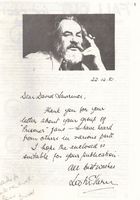 22.10.81
Dear David Lawrence,
Thank you for your
letter about your group of
'Prisoner' fans – I have heard
from others in various parts.
I hope the enclosed is
suitable for your publication.
All best wishes
Leo McKern